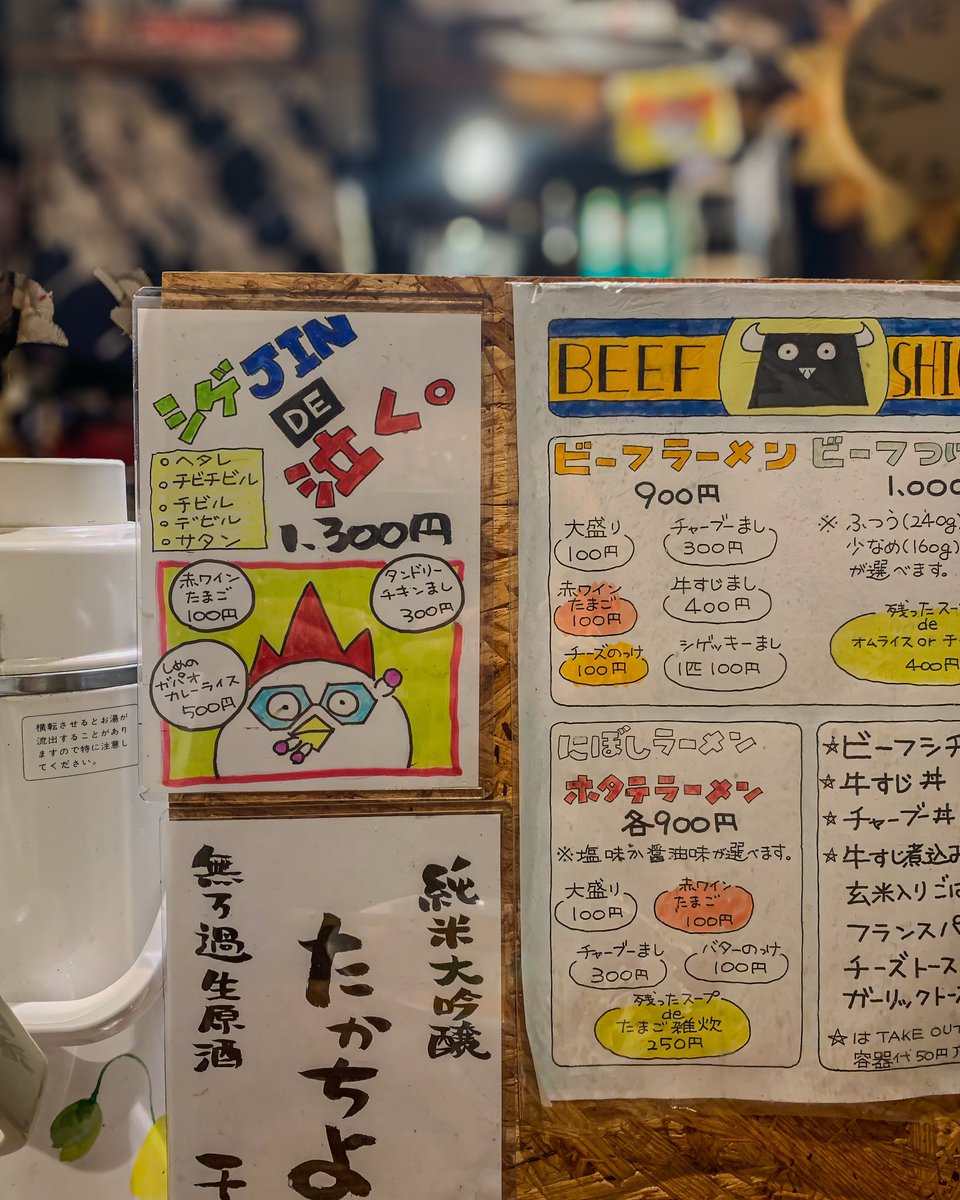 シゲJIN
DE
泣く。
○ヘタレ
○チビチビル
○チビル
○デビル
○サタン
1,300円
赤ワイン
たまご
100円
タンドリー
チキンまし
300円
しめの
ガパオ
カレーライス
500円
横転させるとお湯が
流出することがあり
ますので特に注意し
てください。
純米大吟醸
たかちよ
無ろ過生原酒
BEEF SHI
ビーフラーメン
900円
大盛り
100円
チャーブーまし
300円
赤ワイン
たまご
100円
牛すじまし
400円
チーズのっけ
100円
シゲッキーまし
1匹 100円
ビーフつけ
1,000
※ふつう(240g)
少なめ(160g)
が選べます。
残ったスープ
de
オムライス or チー
400円
にぼしラーメン
ホタテラーメン
各900円
※塩味か醤油味が選べます。
大盛り
100円
赤ワイン
たまご
100円
チャーブーまし
300円
バターのっけ
100円
残ったスープ
de
たまご雑炊
250円
☆ビーフシチ
☆牛すじ丼
☆チャーブー丼
☆牛すじ煮込み
玄米入りごは
フランスパ
チーズトース
ガーリックトース
☆は TAKE OUT
容器代50円